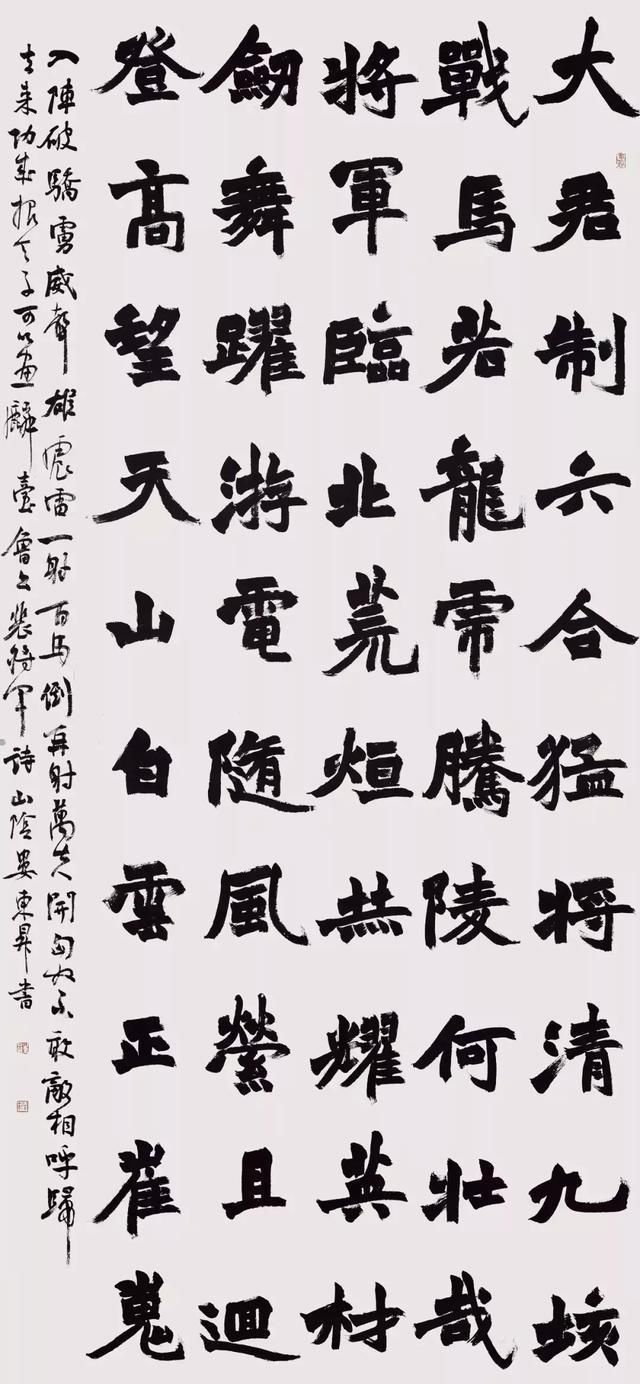 大君制六合猛將清九垓
戰馬若龍虎騰陵何壯哉
將軍臨北荒烜赫耀英材
劒舞躍游電隨風縈且迴
登高望天山白雲正崔嵬
入陣破驕虜威聲雄震雷一射百馬倒再射萬夫開匈奴不敢敵相呼歸
去來功成報天子可以畫麟臺魯公裴將軍詩山陰婁東昇書